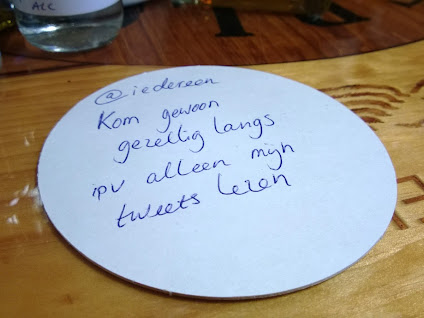 ALC
@iedereen
Kom gewoon
gezellig langs
ipv alleen mijn
tweets lezen